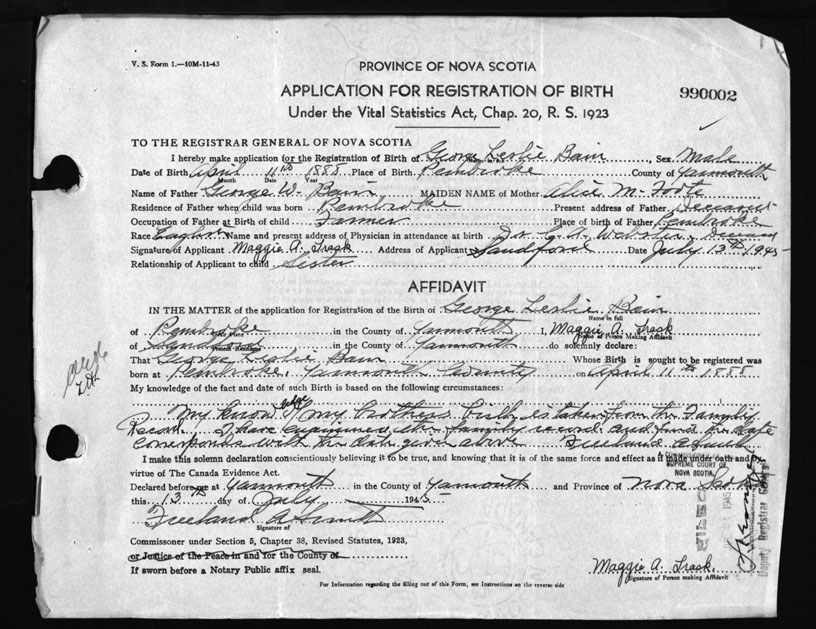 V. S. Form 1.—10M-11-43
PROVINCE OF NOVA SCOTIA
APPLICATION FOR REGISTRATION OF BIRTH
990002
Under the Vital Statistics Act, Chap. 20, R. S. 1923
TO THE REGISTRAR GENERAL OF NOVA SCOTIA
I hereby make application for the Registration of Birth of George Leslie Bain, Sex Male
Date of Birth April 11th 1888 Place of Birth Pembroke County of Yarmouth
Month Date Year
Name of Father George W. Bain MAIDEN NAME of Mother Alice M. Foote
Residence of Father when child was born Pembroke Present address of Father Deceased
Occupation of Father at Birth of child Farmer Place of birth of Father Pembroke
Race English Name and present address of Physician in attendance at birth Dr. C. A. Webster, Deceased
Signature of Applicant Maggie A. Trask Address of Applicant Sandford Date July 13th 1945
Relationship of Applicant to child Sister
AFFIDAVIT
IN THE MATTER of the application for Registration of the Birth of George Leslie Bain
Name in full
of Pembroke in the County of Yarmouth I, Maggie A. Trask
Name of Person Making Affidavit
of Sandford in the County of Yarmouth do solemnly declare:
That George Leslie Bain Whose Birth is sought to be registered was
born at Pembroke, Yarmouth County on April 11th 1888
My knowledge of the fact and date of such Birth is based on the following circumstances:
My knowledge of my brothers birth is taken from the Family
Record. I have examined the family record and find the date
corresponds with the date given above Freeland A Smith
I make this solemn declaration conscientiously believing it to be true, and knowing that it is of the same force and effect as if made under oath and by
virtue of The Canada Evidence Act.
SUPREME COURT OF
NOVA SCOTIA
Declared before me at Yarmouth in the County of Yarmouth and Province of Nova Scotia
this 13th day of July 1945
Freeland A Smith
Signature of
Commissioner under Section 5, Chapter 38, Revised Statutes, 1923,
or Justice of the Peace in and for the County of
If sworn before a Notary Public affix seal.
Maggie A. Trask
Signature of Person making Affidavit
FILED
1945
Deputy Registrar General
For Information regarding the filling out of this Form, see Instructions on the reverse side